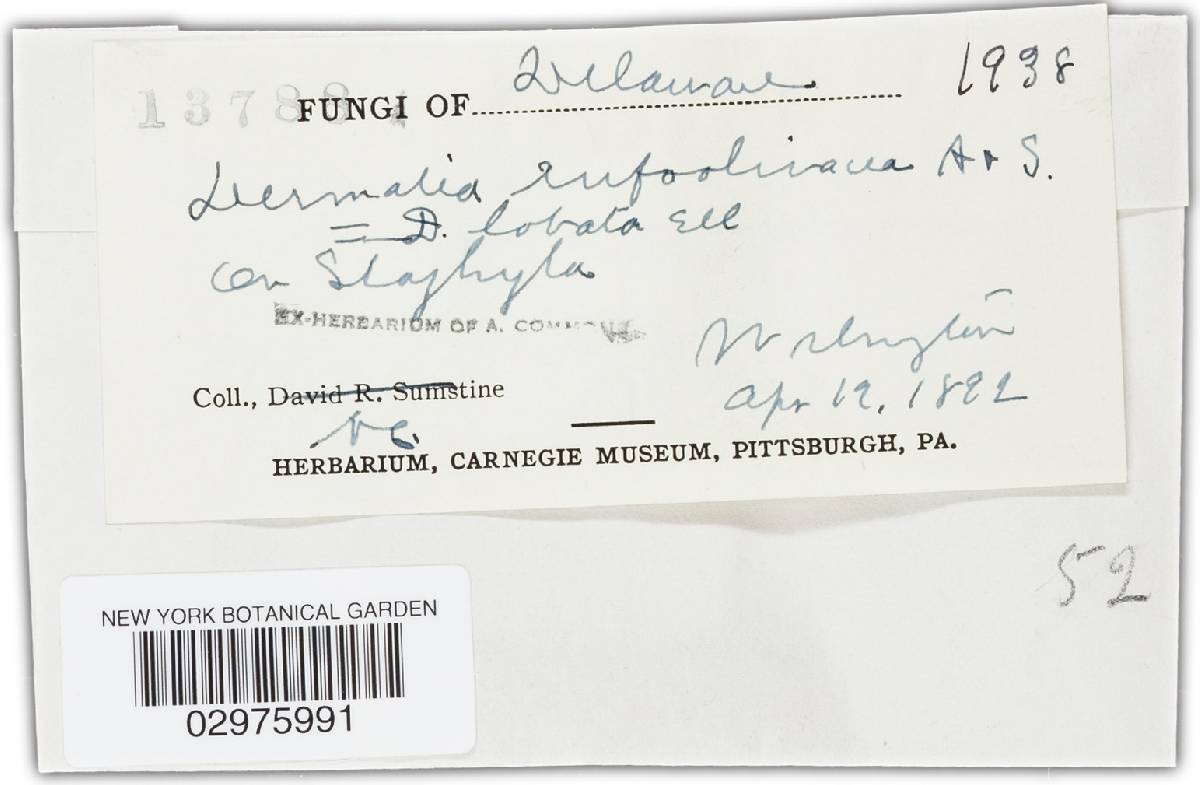 FUNGI OF Delaware 1938
Dermatia rufoolivacea A & S.
= D. lobata Ell
on Staphyla
EX-HERBARIUM OF A. COMMONS
Wilmington
Coll., David R. Sumstine
Apr 12, 1892
HERBARIUM, CARNEGIE MUSEUM, PITTSBURGH, PA.
52
NEW YORK BOTANICAL GARDEN
02975991